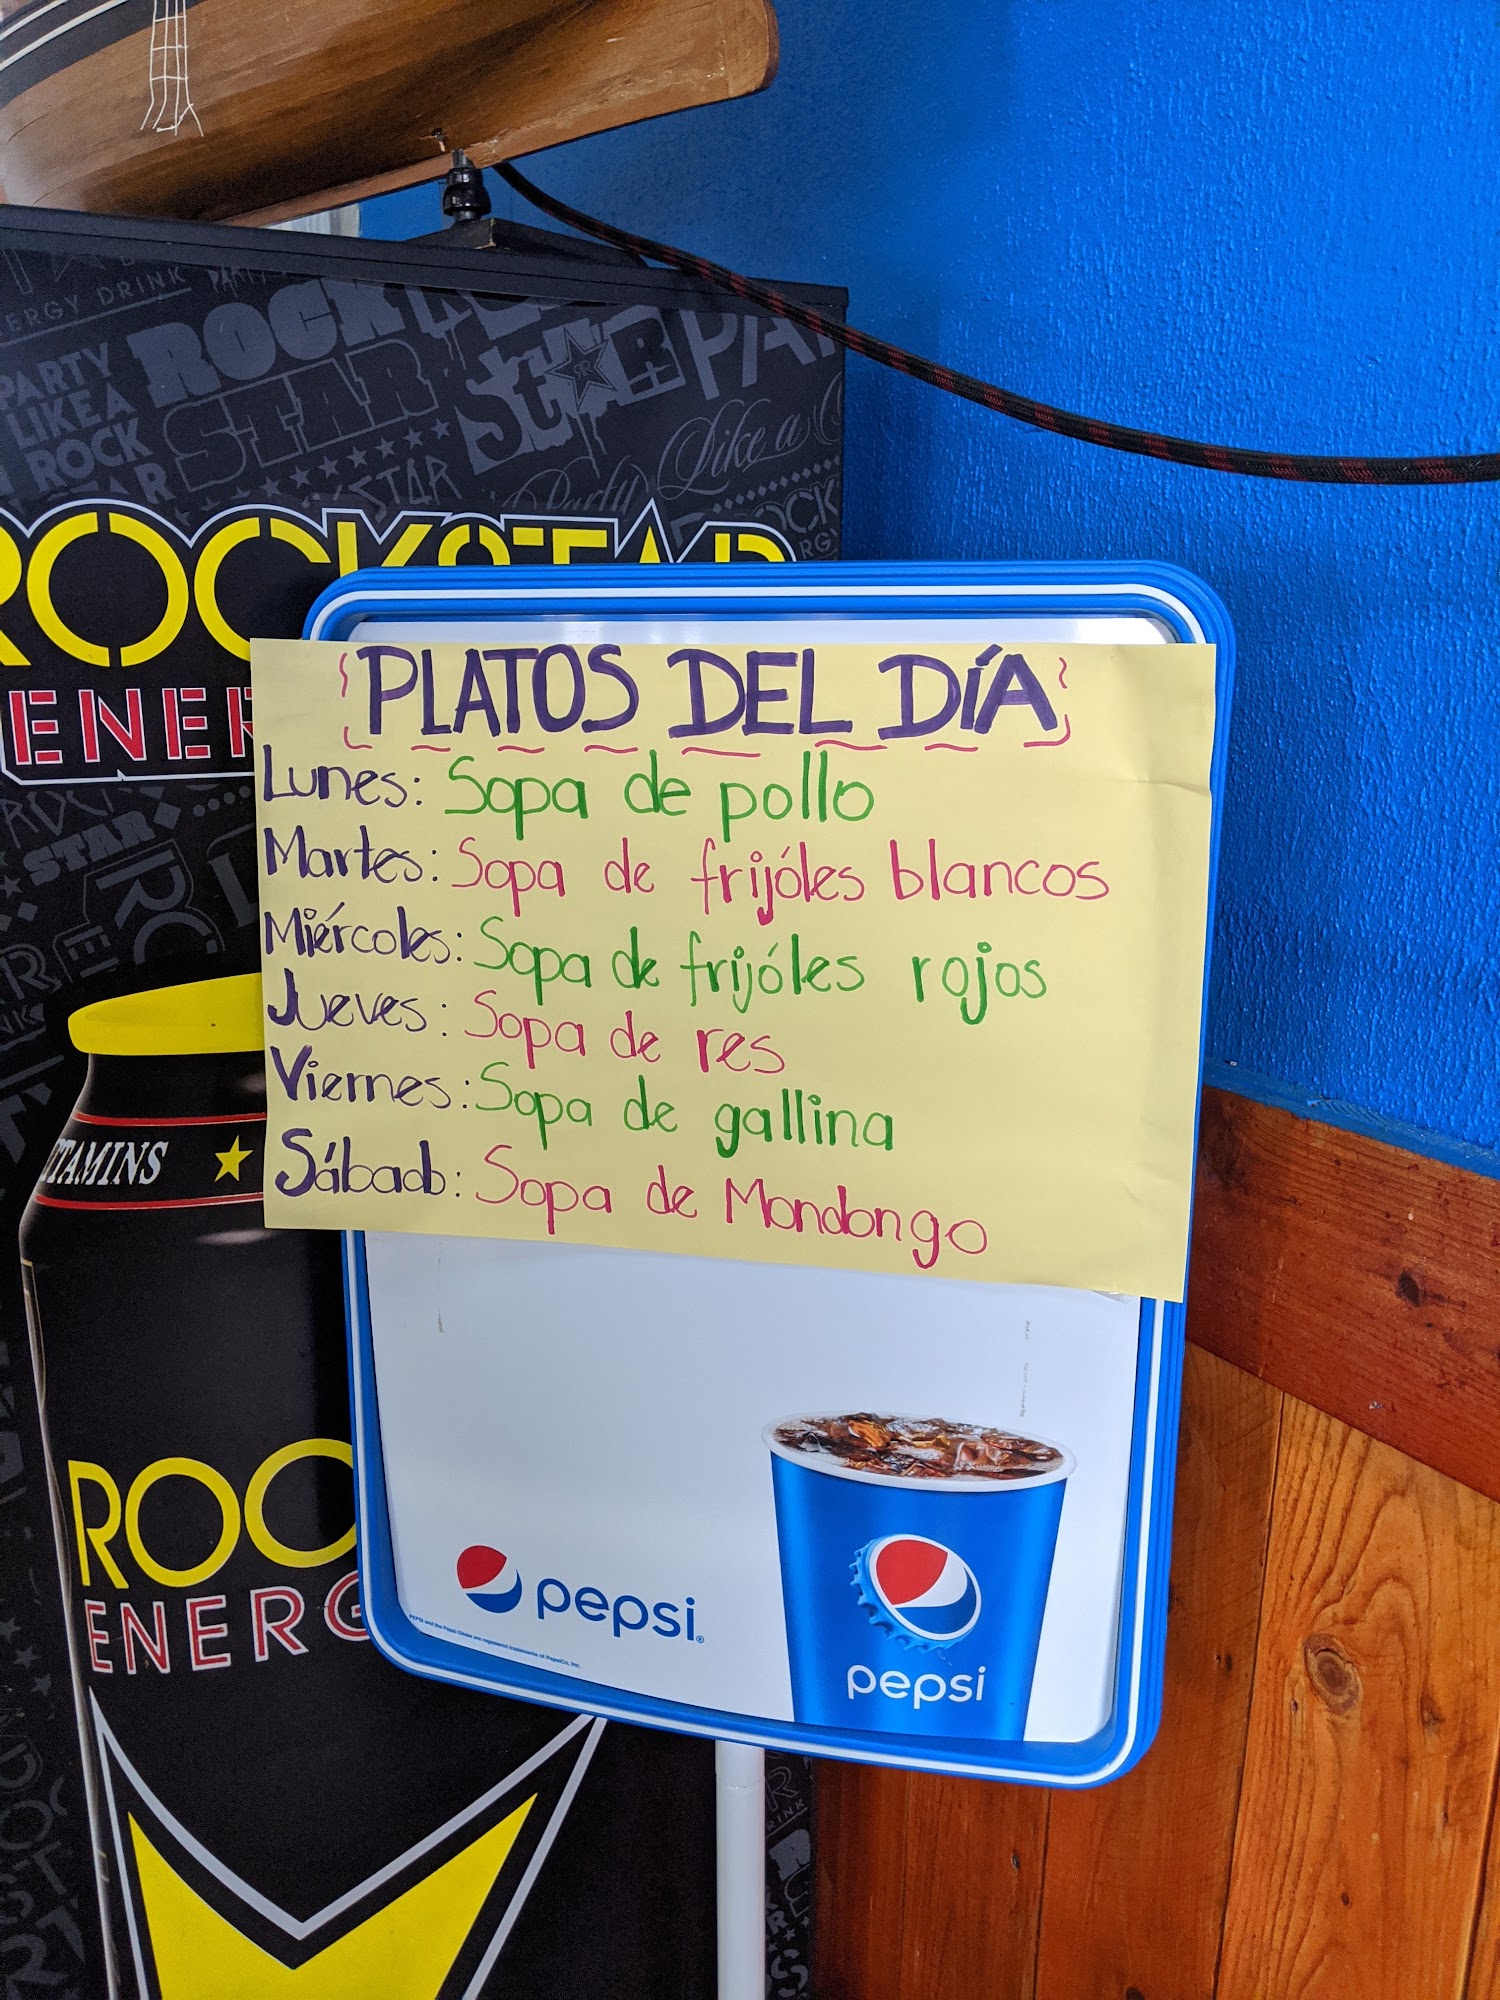 ENERGY DRINK
PARTY
LIKE A
ROCK
STAR
ROCK
STAR
SUR
PAR
Like a
Party
STAR
ROCKSTAR
ENER
PLATOS DEL DÍA
Lunes: Sopa de pollo
Martes: Sopa de frijóles blancos
Miércoles: Sopa de frijóles rojos
Jueves: Sopa de res
Viernes: Sopa de gallina
Sábado: Sopa de Mondongo
STAR
TAMINS
ROC
ENERG
pepsi
pepsi
PEPSI and the Pepsi Globe are registered trademarks of PepsiCo, Inc.